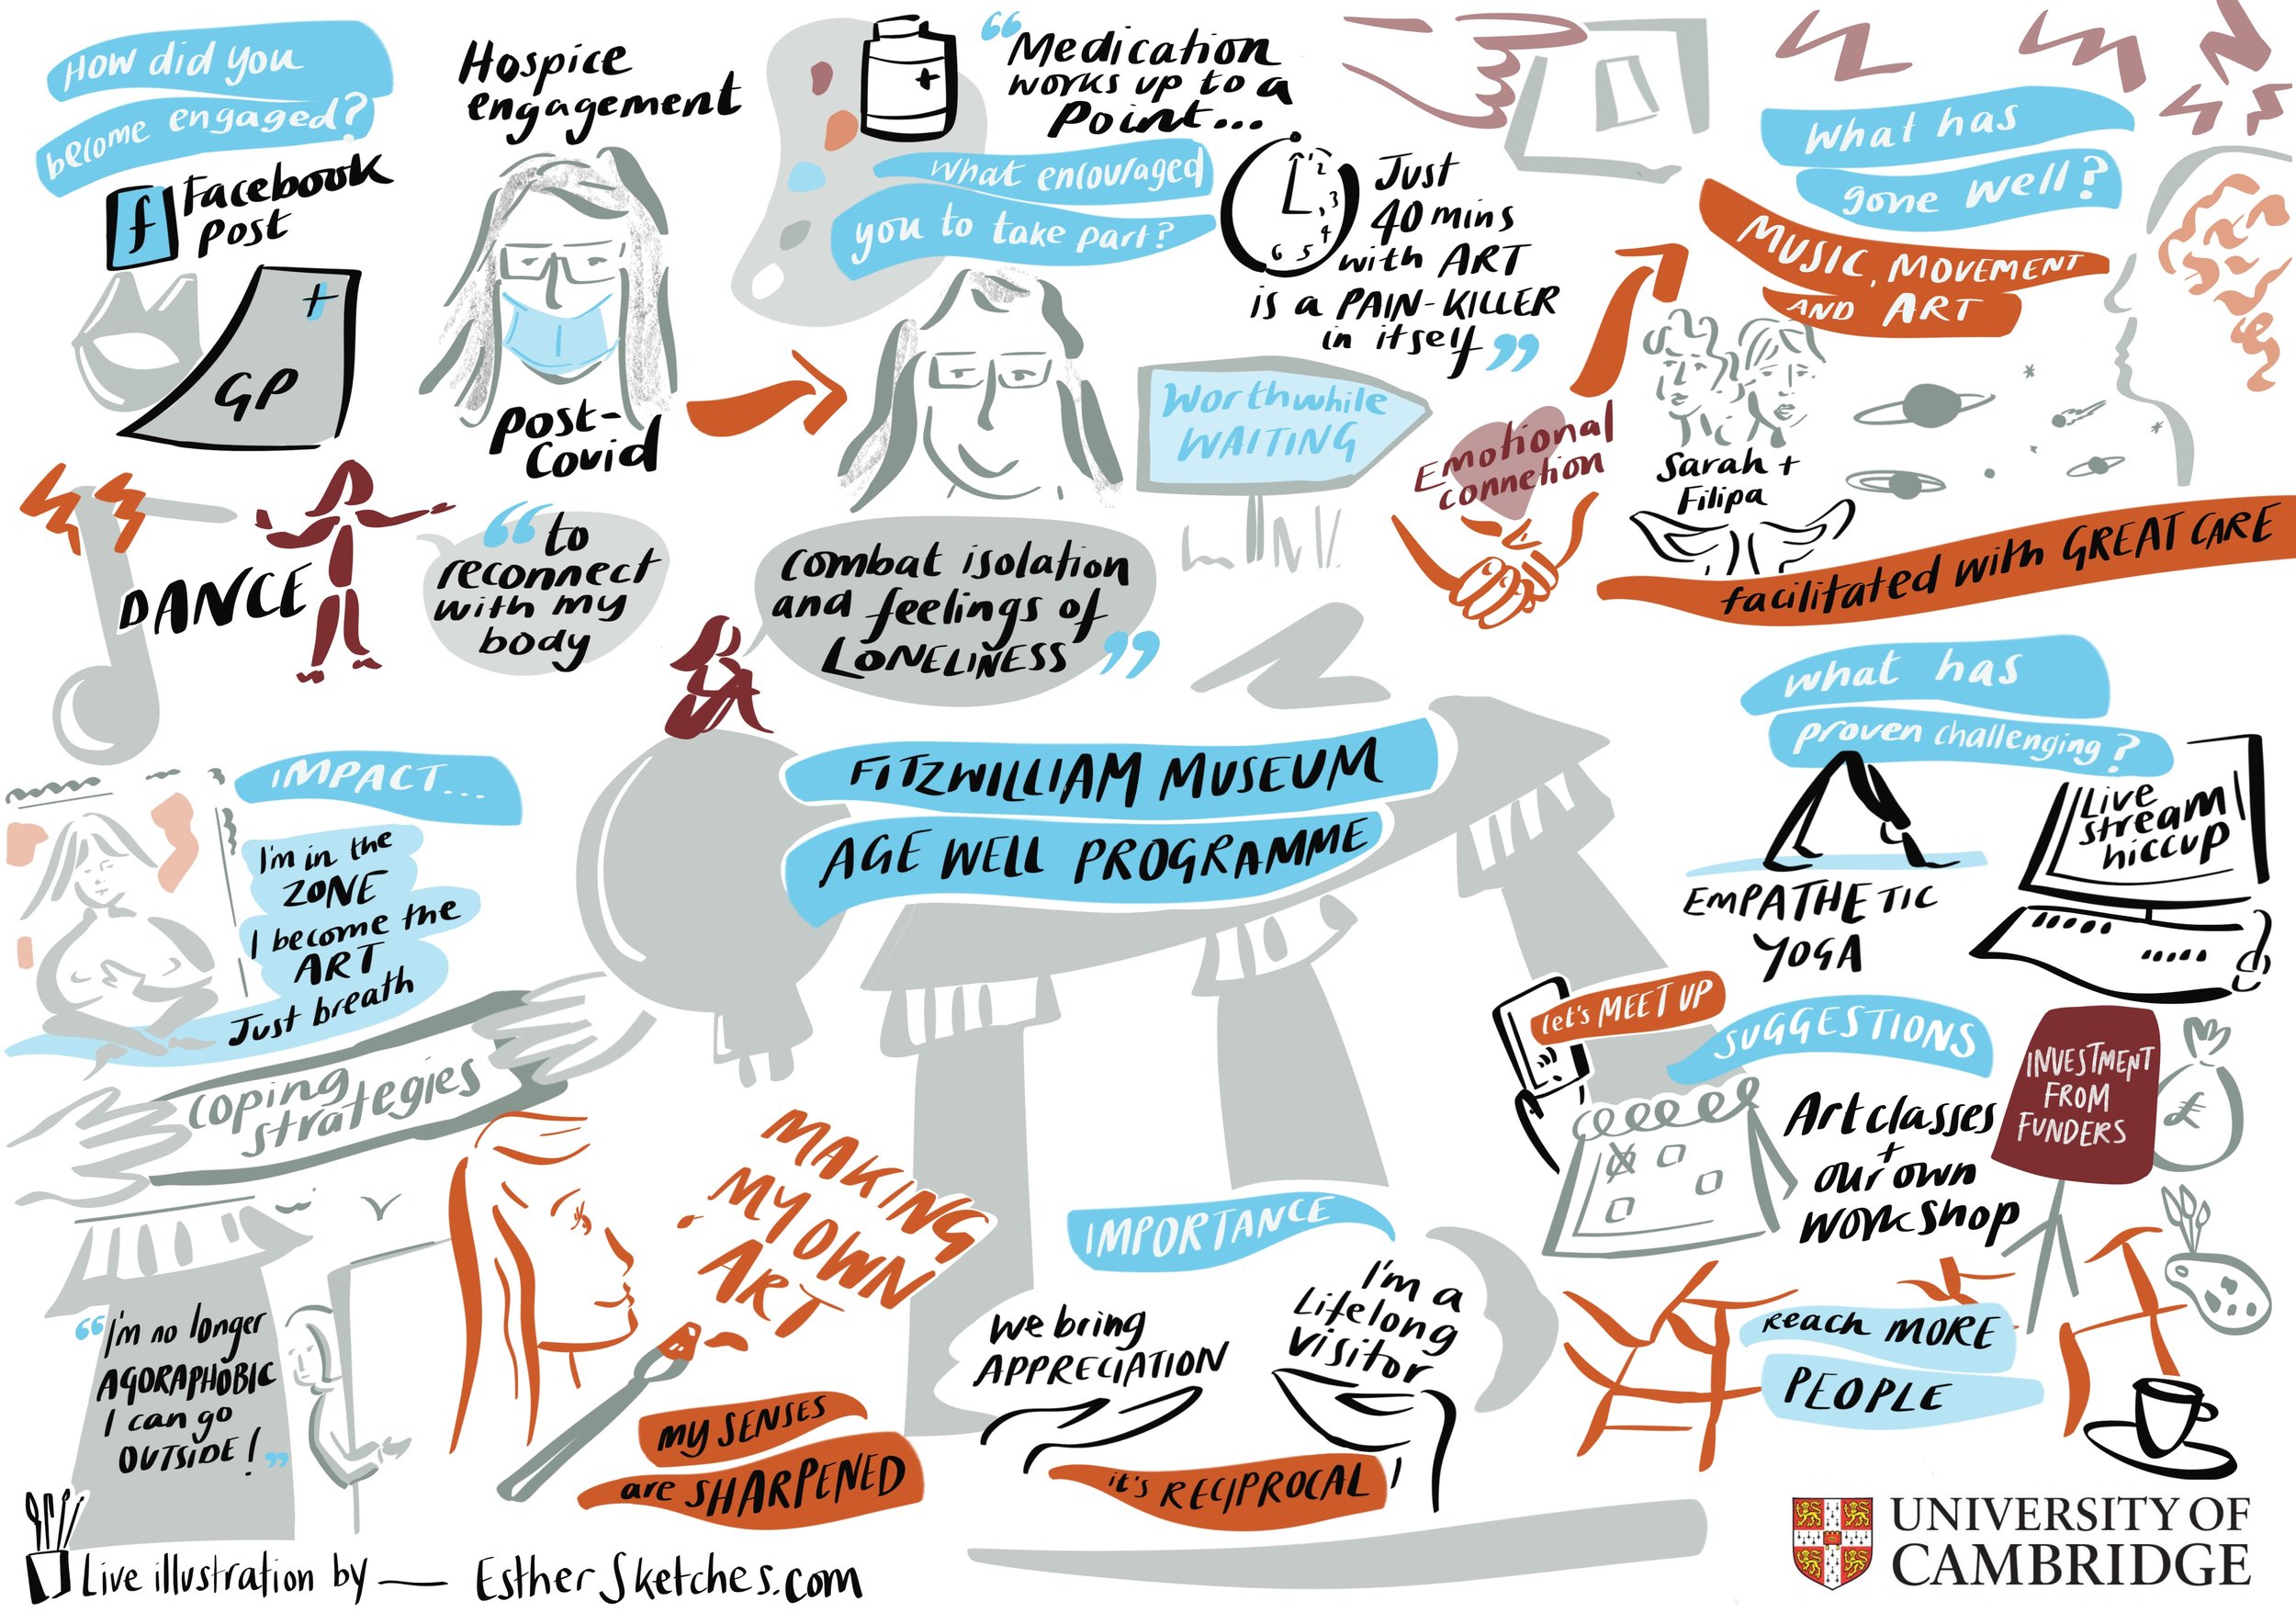 How did you
become engaged?
f
Facebook
post
+
GP
Hospice
engagement
Post-
Covid
+
“Medication
works up to a
Point...
What encouraged
you to take part?
12
3
4
5
6
Just
40 mins
with ART
is a PAIN-KILLER
in itself”
Worthwhile
WAITING
What has
gone well?
MUSIC, MOVEMENT
AND ART
Emotional
connetion
Sarah +
Filipa
facilitated with GREAT CARE
DANCE
“to
reconnect
with my
body
combat isolation
and feelings of
LONELINESS”
FITZWILLIAM MUSEUM
AGE WELL PROGRAMME
what has
proven challenging?
Live
stream
hiccup
EMPATHETIC
YOGA
IMPACT...
I'm in the
ZONE
I become the
ART
Just breath
coping
strategies
“I'm no longer
AGORAPHOBIC
I can go
OUTSIDE!”
MAKING
MY OWN
ART
my SENSES
are SHARPENED
IMPORTANCE
we bring
APPRECIATION
I'm a
Lifelong
visitor
it's RECIPROCAL
let's MEET UP
SUGGESTIONS
Art classes
+
our own
workshop
INVESTMENT
FROM
FUNDERS
£
Reach MORE
PEOPLE
Live illustration by — EstherSketches.com
UNIVERSITY OF
CAMBRIDGE